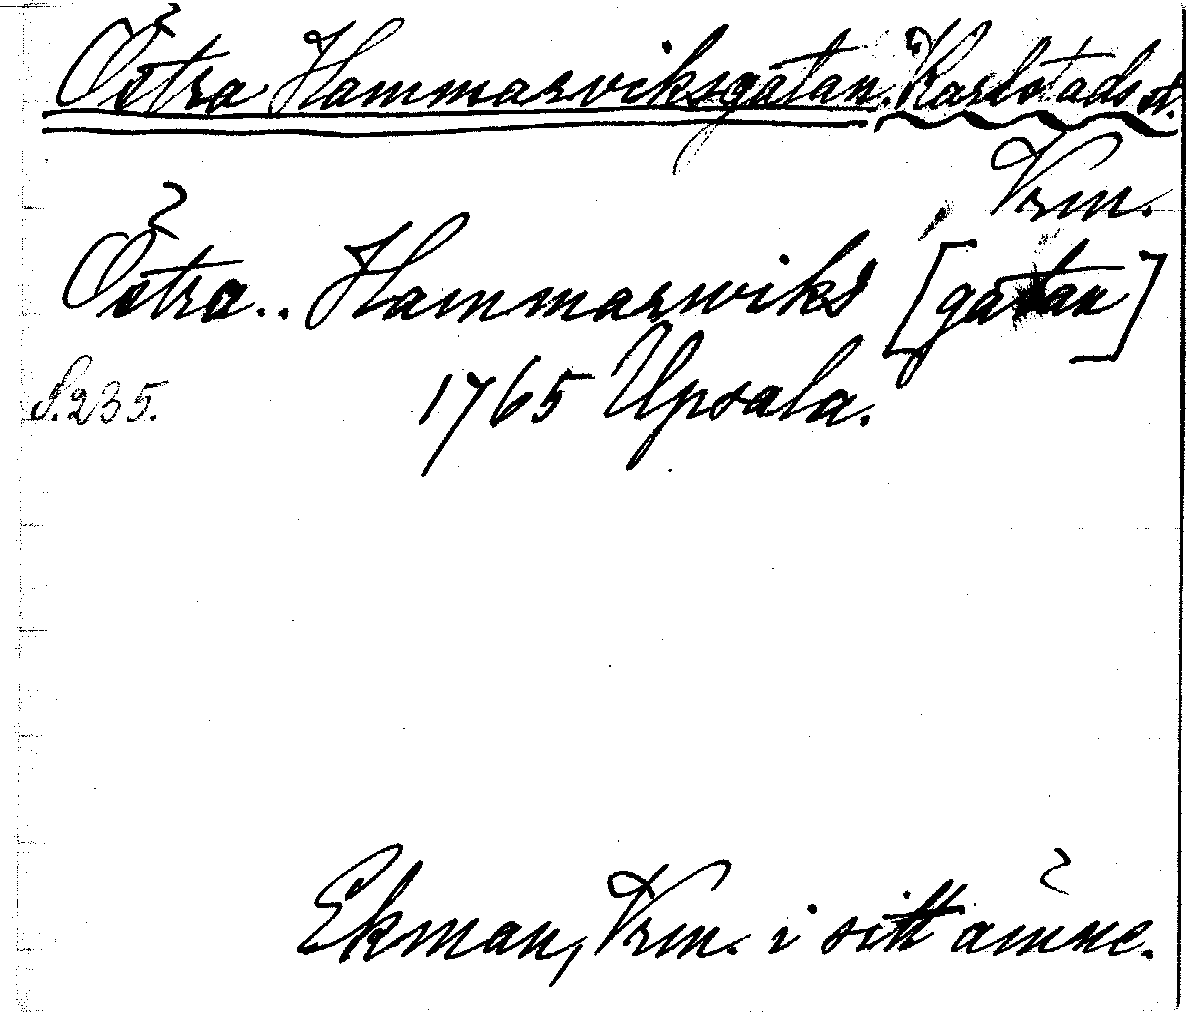 Östra Hammarviksgatan. Karlstads st.
Vrm.
Östra.. Hammarwiks [gatan]
S. 235. 1765 Upsala.
Ekman, Vrm. i sitt ämne.